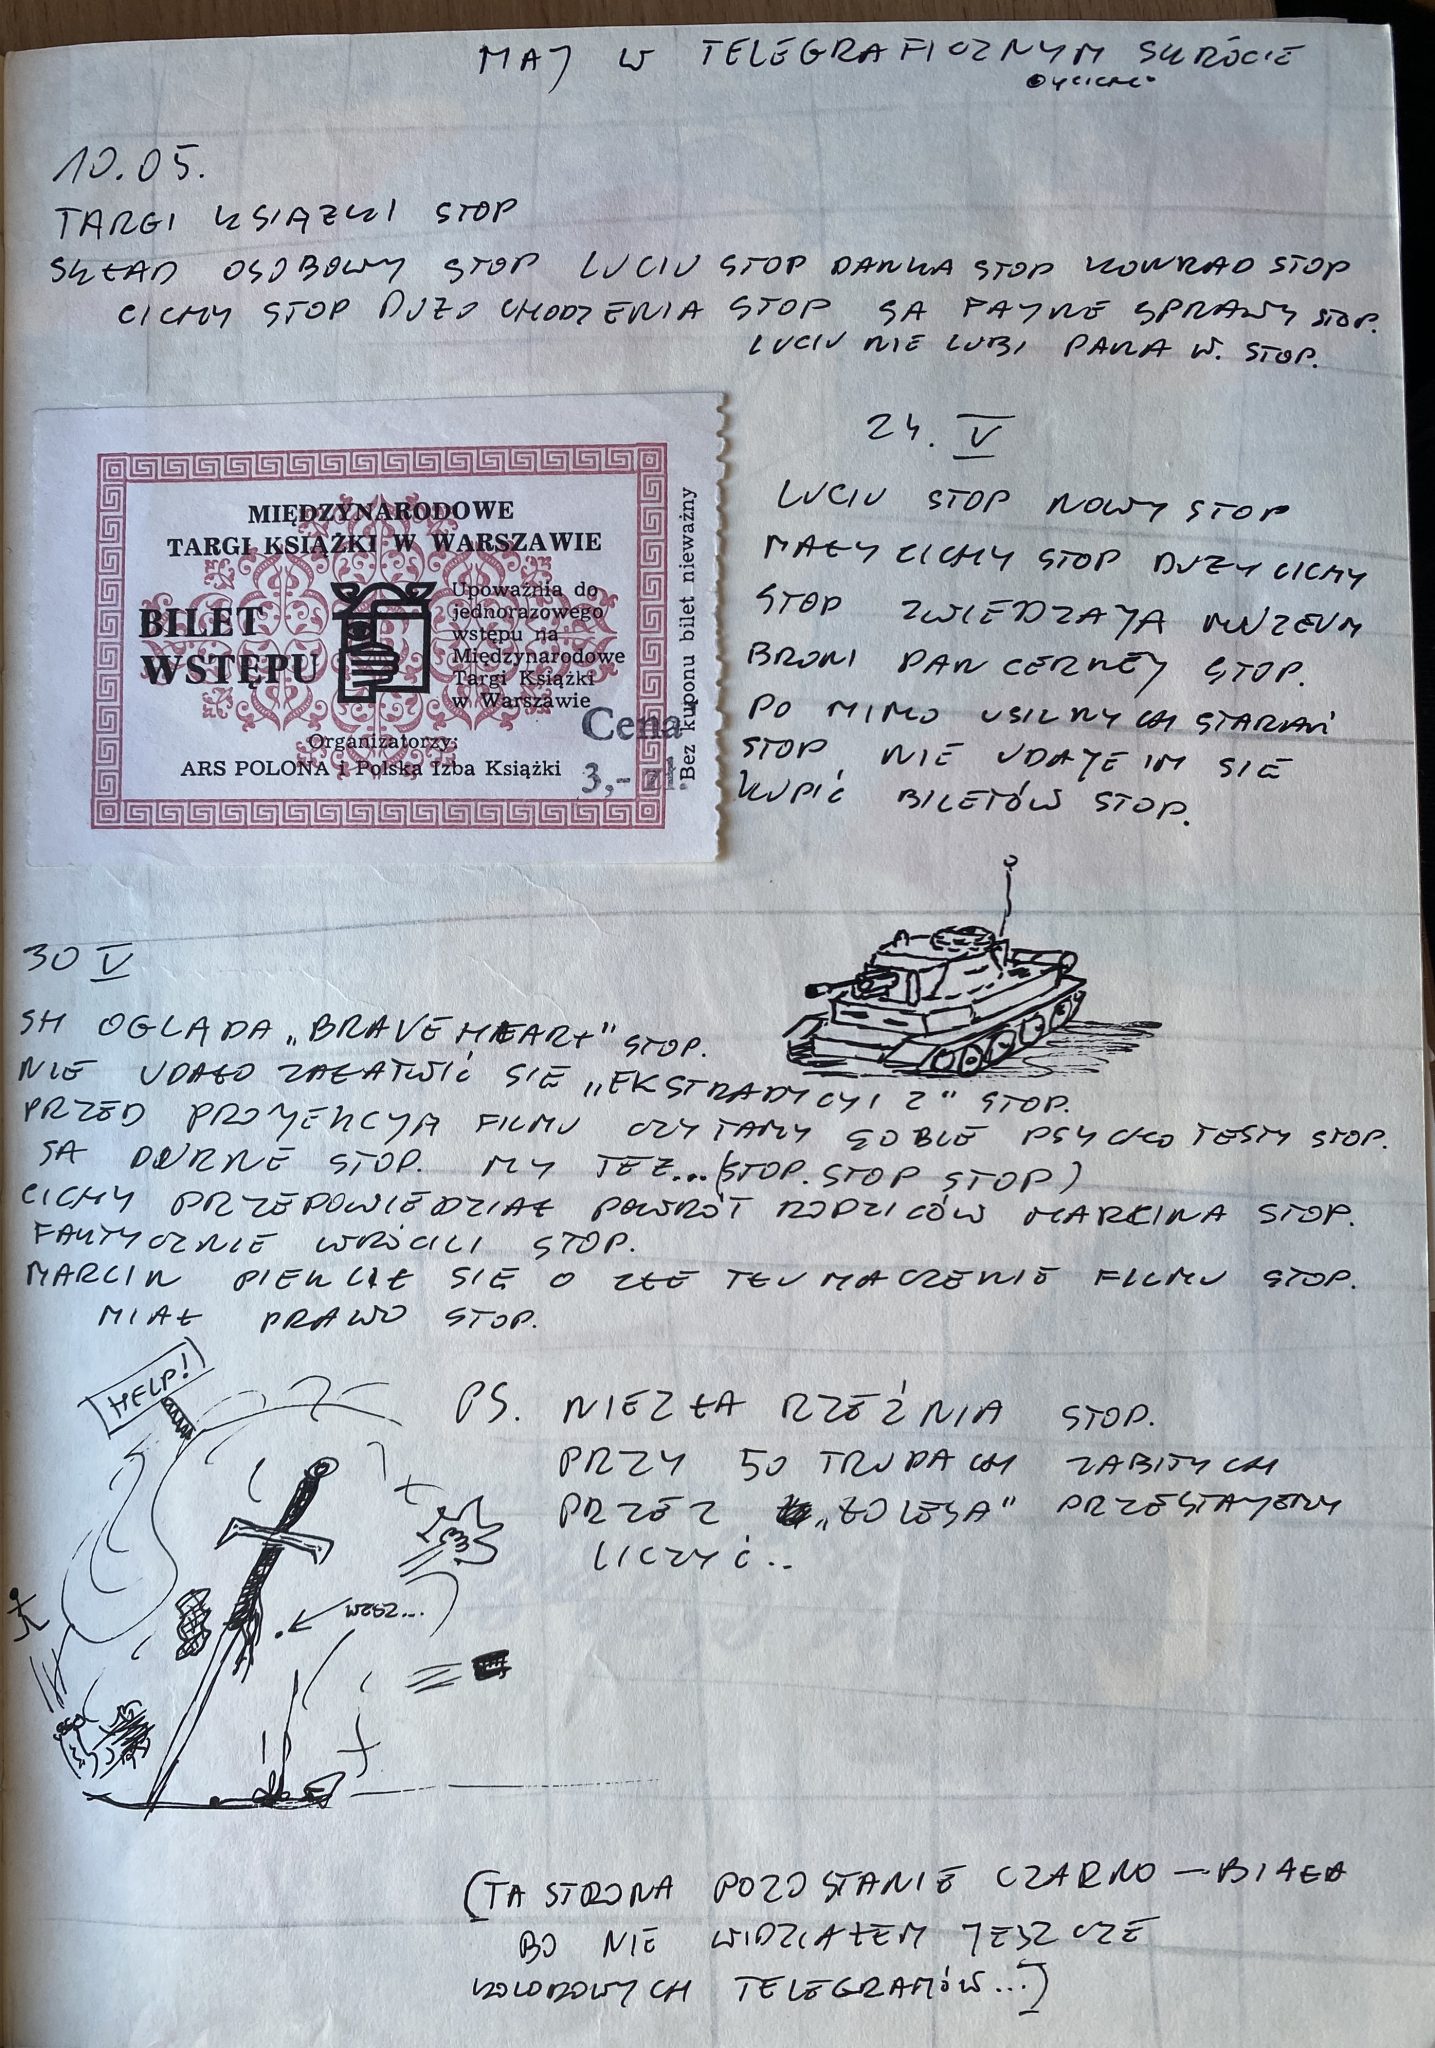 MAJ W TELEGRAFICZNYM SKRÓCIE
10.05.
TARGI KSIĄZKI STOP
SKŁAD OSOBOWY STOP LUCIU STOP DANKA STOP KONRAD STOP
CICHY STOP DUZO CHODZENIA STOP SĄ FAJNE SPRAWY STOP.
LUCIU NIE LUBI PANA W. STOP.
MIĘDZYNARODOWE
TARGI KSIĄŻKI W WARSZAWIE
BILET
WSTĘPU
Upoważnia do
jednorazowego
wstępu na
Międzynarodowe
Targi Książki
w Warszawie
Organizatorzy:
ARS POLONA i Polska Izba Książki
Cena
3,- zł.
Bez kuponu bilet nieważny
24. V
LUCIU STOP NOWY STOP
MAŁY CICHY STOP DUZY CICHY
STOP ZWIEDZAJĄ MUZEUM
BRONI PANCERNEJ STOP.
PO MIMO USILNYCH STARAŃ
STOP NIE UDAJE IM SIE
KUPIĆ BILETÓW STOP.
30 V
SH OGLĄDA „BRAVE HEART" STOP.
NIE UDAŁO ZAŁATWIĆ SIE „EKSTRADYCJI 2" STOP.
PRZED PROJEKCJĄ FILMU CZYTAMY SOBIE PSYCHO TESTY STOP.
SĄ DURNE STOP. MY TEŻ...(STOP. STOP STOP)
CICHY PRZEPOWIEDZIAŁ POWRÓT RODZICÓW MARCINA STOP.
FAKTYCZNIE WRÓCILI STOP.
MARCIN PIEKLIŁ SIE O ZŁE TŁUMACZENIE FILMU STOP.
MIAŁ PRAWO STOP.
HELP!
WESZ...
PS. NIEZŁA RZEŹNIA STOP.
PRZY 50 TRUPACH ZABITYCH
PRZEZ „ŁOLESA" PRZESTAJEMY
LICZYĆ..
(TA STRONA POZOSTANIE CZARNO-BIAŁA
BO NIE WIDZIAŁEM JESZCZE
KOLOROWYCH TELEGRAMÓW...)